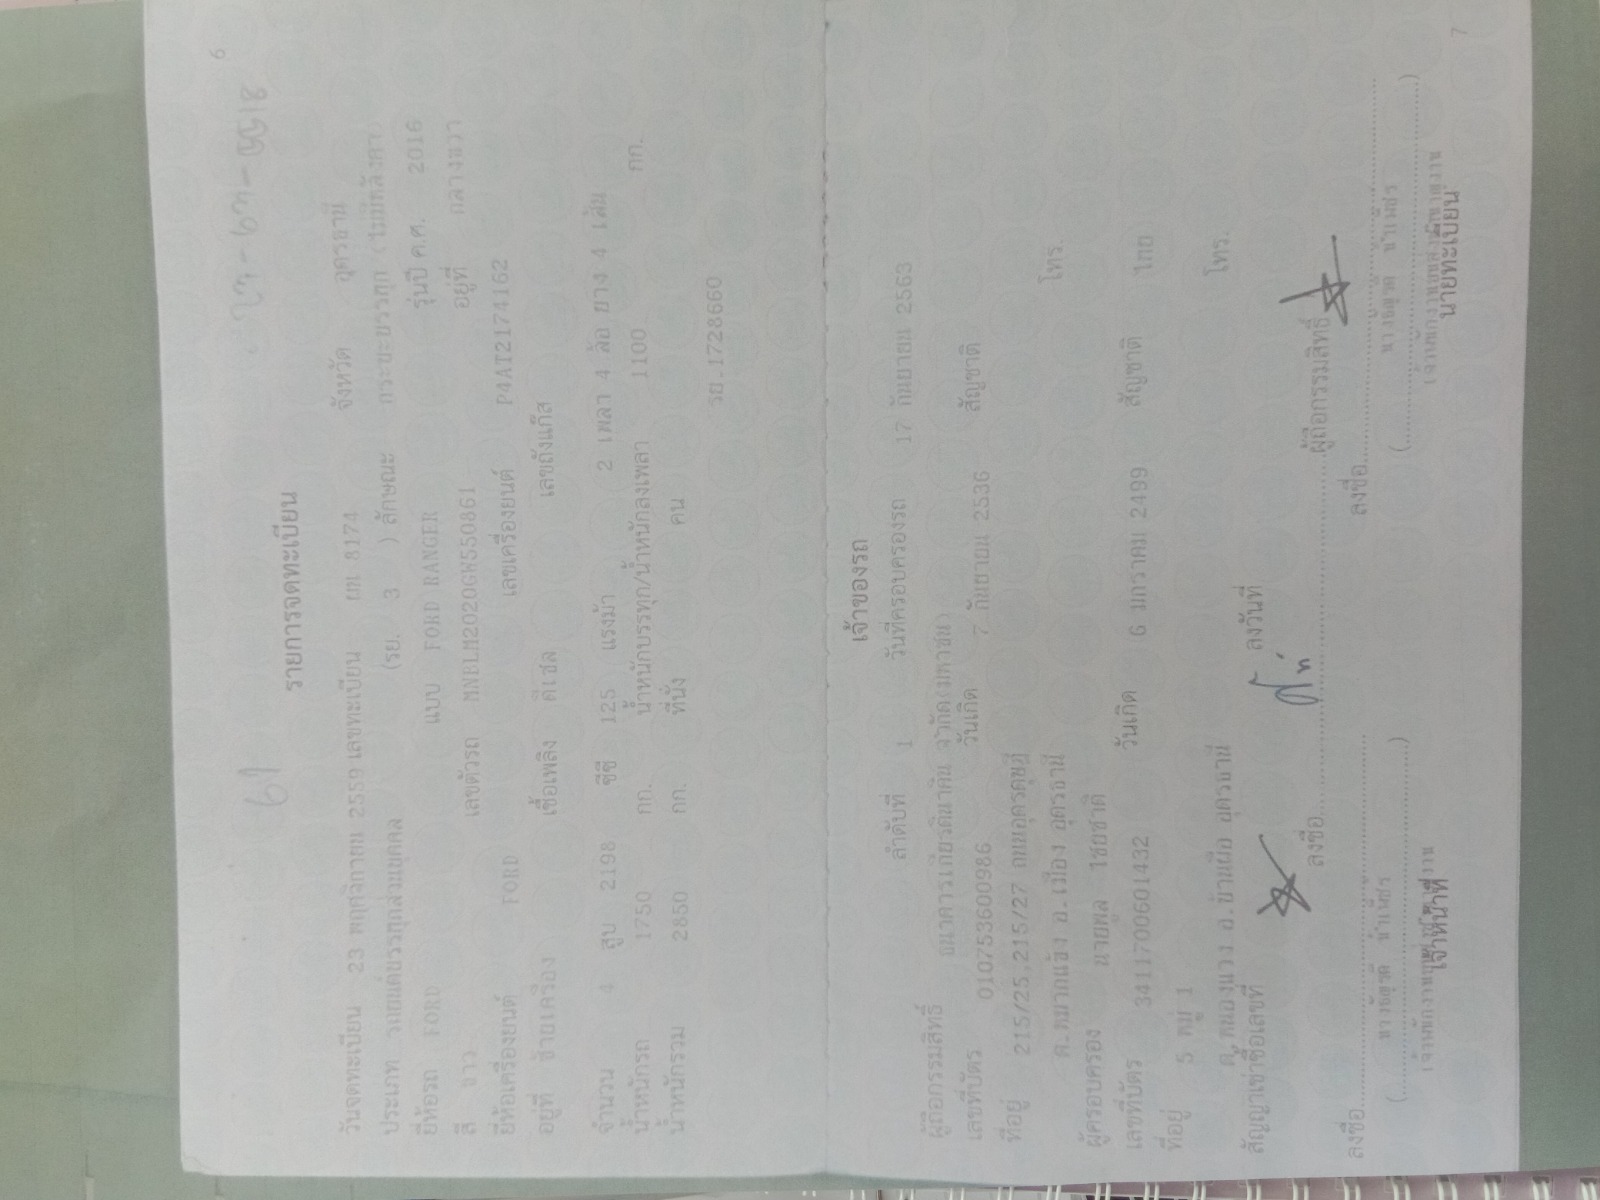 6
รายการจดทะเบียน
วันจดทะเบียน 23 พฤศจิกายน 2559 เลขทะเบียน ผท 8174 จังหวัด อุดรธานี
ประเภท รถยนต์บรรทุกส่วนบุคคล (รย. 3 ) ลักษณะ กระบะบรรทุก (ไม่มีหลังคา)
ยี่ห้อรถ FORD แบบ FORD RANGER รุ่นปี ค.ศ. 2016
สี ขาว เลขตัวรถ MNBLM2020GW550861 อยู่ที่ กลางขวา
ยี่ห้อเครื่องยนต์ FORD เลขเครื่องยนต์ P4AT2174162
อยู่ที่ ซ้ายเครื่อง เชื้อเพลิง ดีเซล เลขถังแก๊ส
จำนวน 4 สูบ 2198 ซีซี 125 แรงม้า 2 เพลา 4 ล้อ ยาง 4 เส้น
น้ำหนักรถ 1750 กก. น้ำหนักบรรทุก/น้ำหนักลงเพลา 1100 กก.
น้ำหนักรวม 2850 กก. ที่นั่ง คน
รย.1728660
เจ้าของรถ
ลำดับที่ 1 วันที่ครอบครองรถ 17 กันยายน 2563
ผู้ถือกรรมสิทธิ์ ธนาคารเกียรตินาคิน จำกัด(มหาชน)
เลขที่บัตร 0107536000986 วันเกิด 7 กันยายน 2536 สัญชาติ
ที่อยู่ 215/25,215/27 ถนนอุดรดุษฎี
ต.หมากแข้ง อ.เมือง อุดรธานี โทร.
ผู้ครอบครอง นายพูล ไชยชาติ
เลขที่บัตร 3411700601432 วันเกิด 6 มกราคม 2499 สัญชาติ ไทย
ที่อยู่ 5 หมู่ 1
ต.หนองแวง อ.บ้านผือ อุดรธานี โทร.
สัญญาเช่าซื้อเลขที่ ลงวันที่
ลงชื่อ ผู้ถือกรรมสิทธิ์
ลงชื่อ ลงชื่อ
เจ้าหน้าที่ นายทะเบียน
7